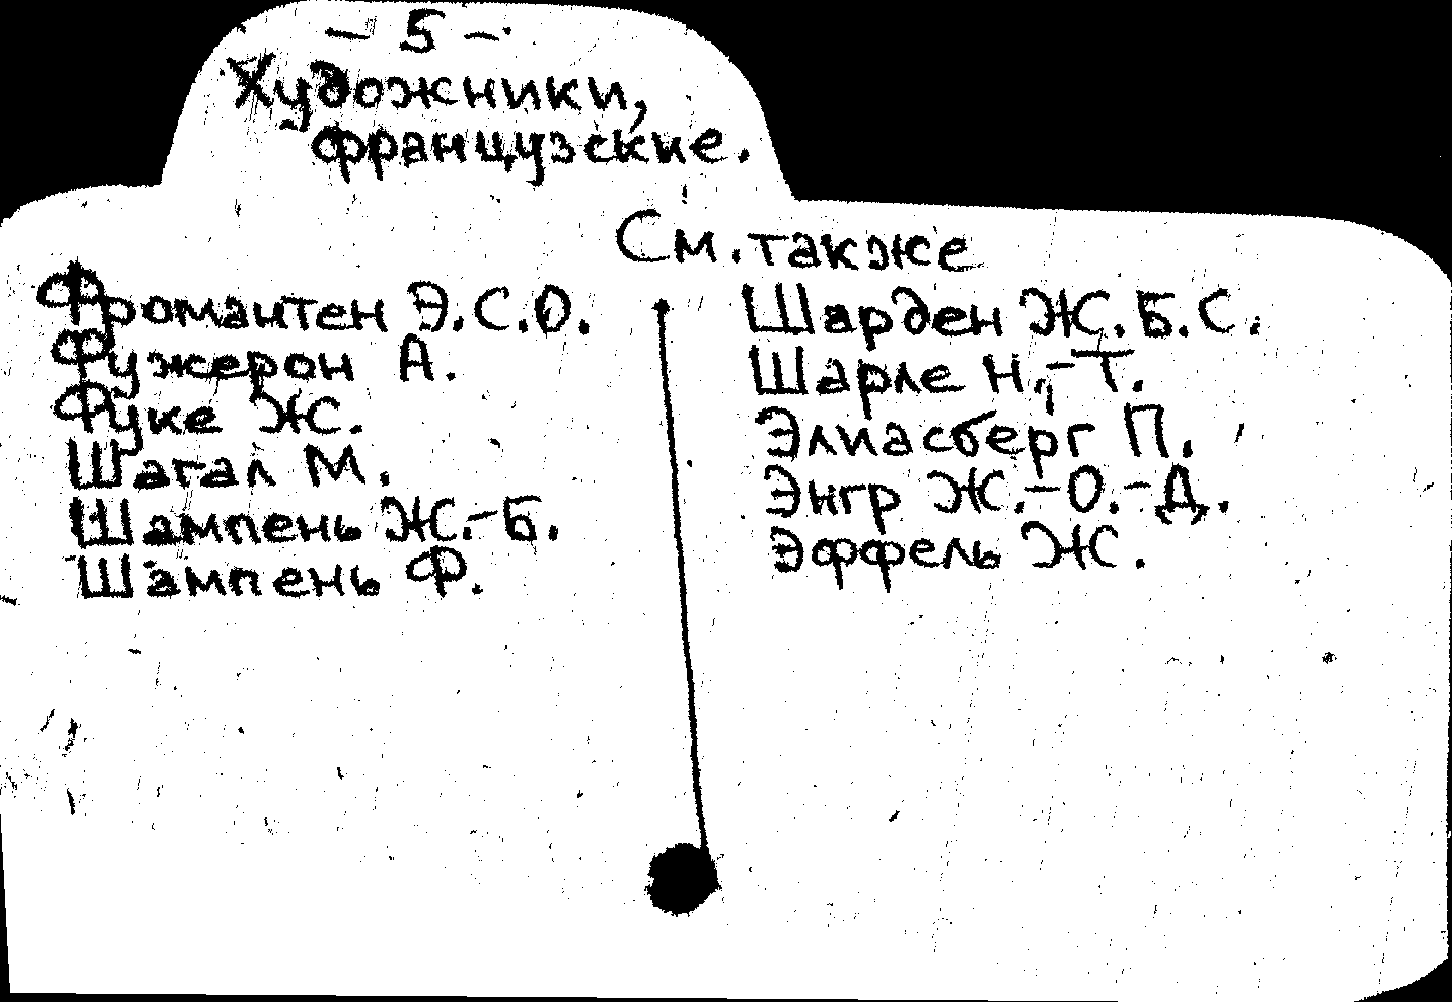 – 5 –
Художники,
французские.
См. также
Фромантен Э.С.О.
Фужерон А.
Фуке Ж.
Шагал М.
Шампень Ж.-Б.
Шампень Ф.
Шарден Ж.Б.С.
Шарле Н.-Т.
Элиасберг П.
Энгр Ж.-О.-Д.
Эффель Ж.